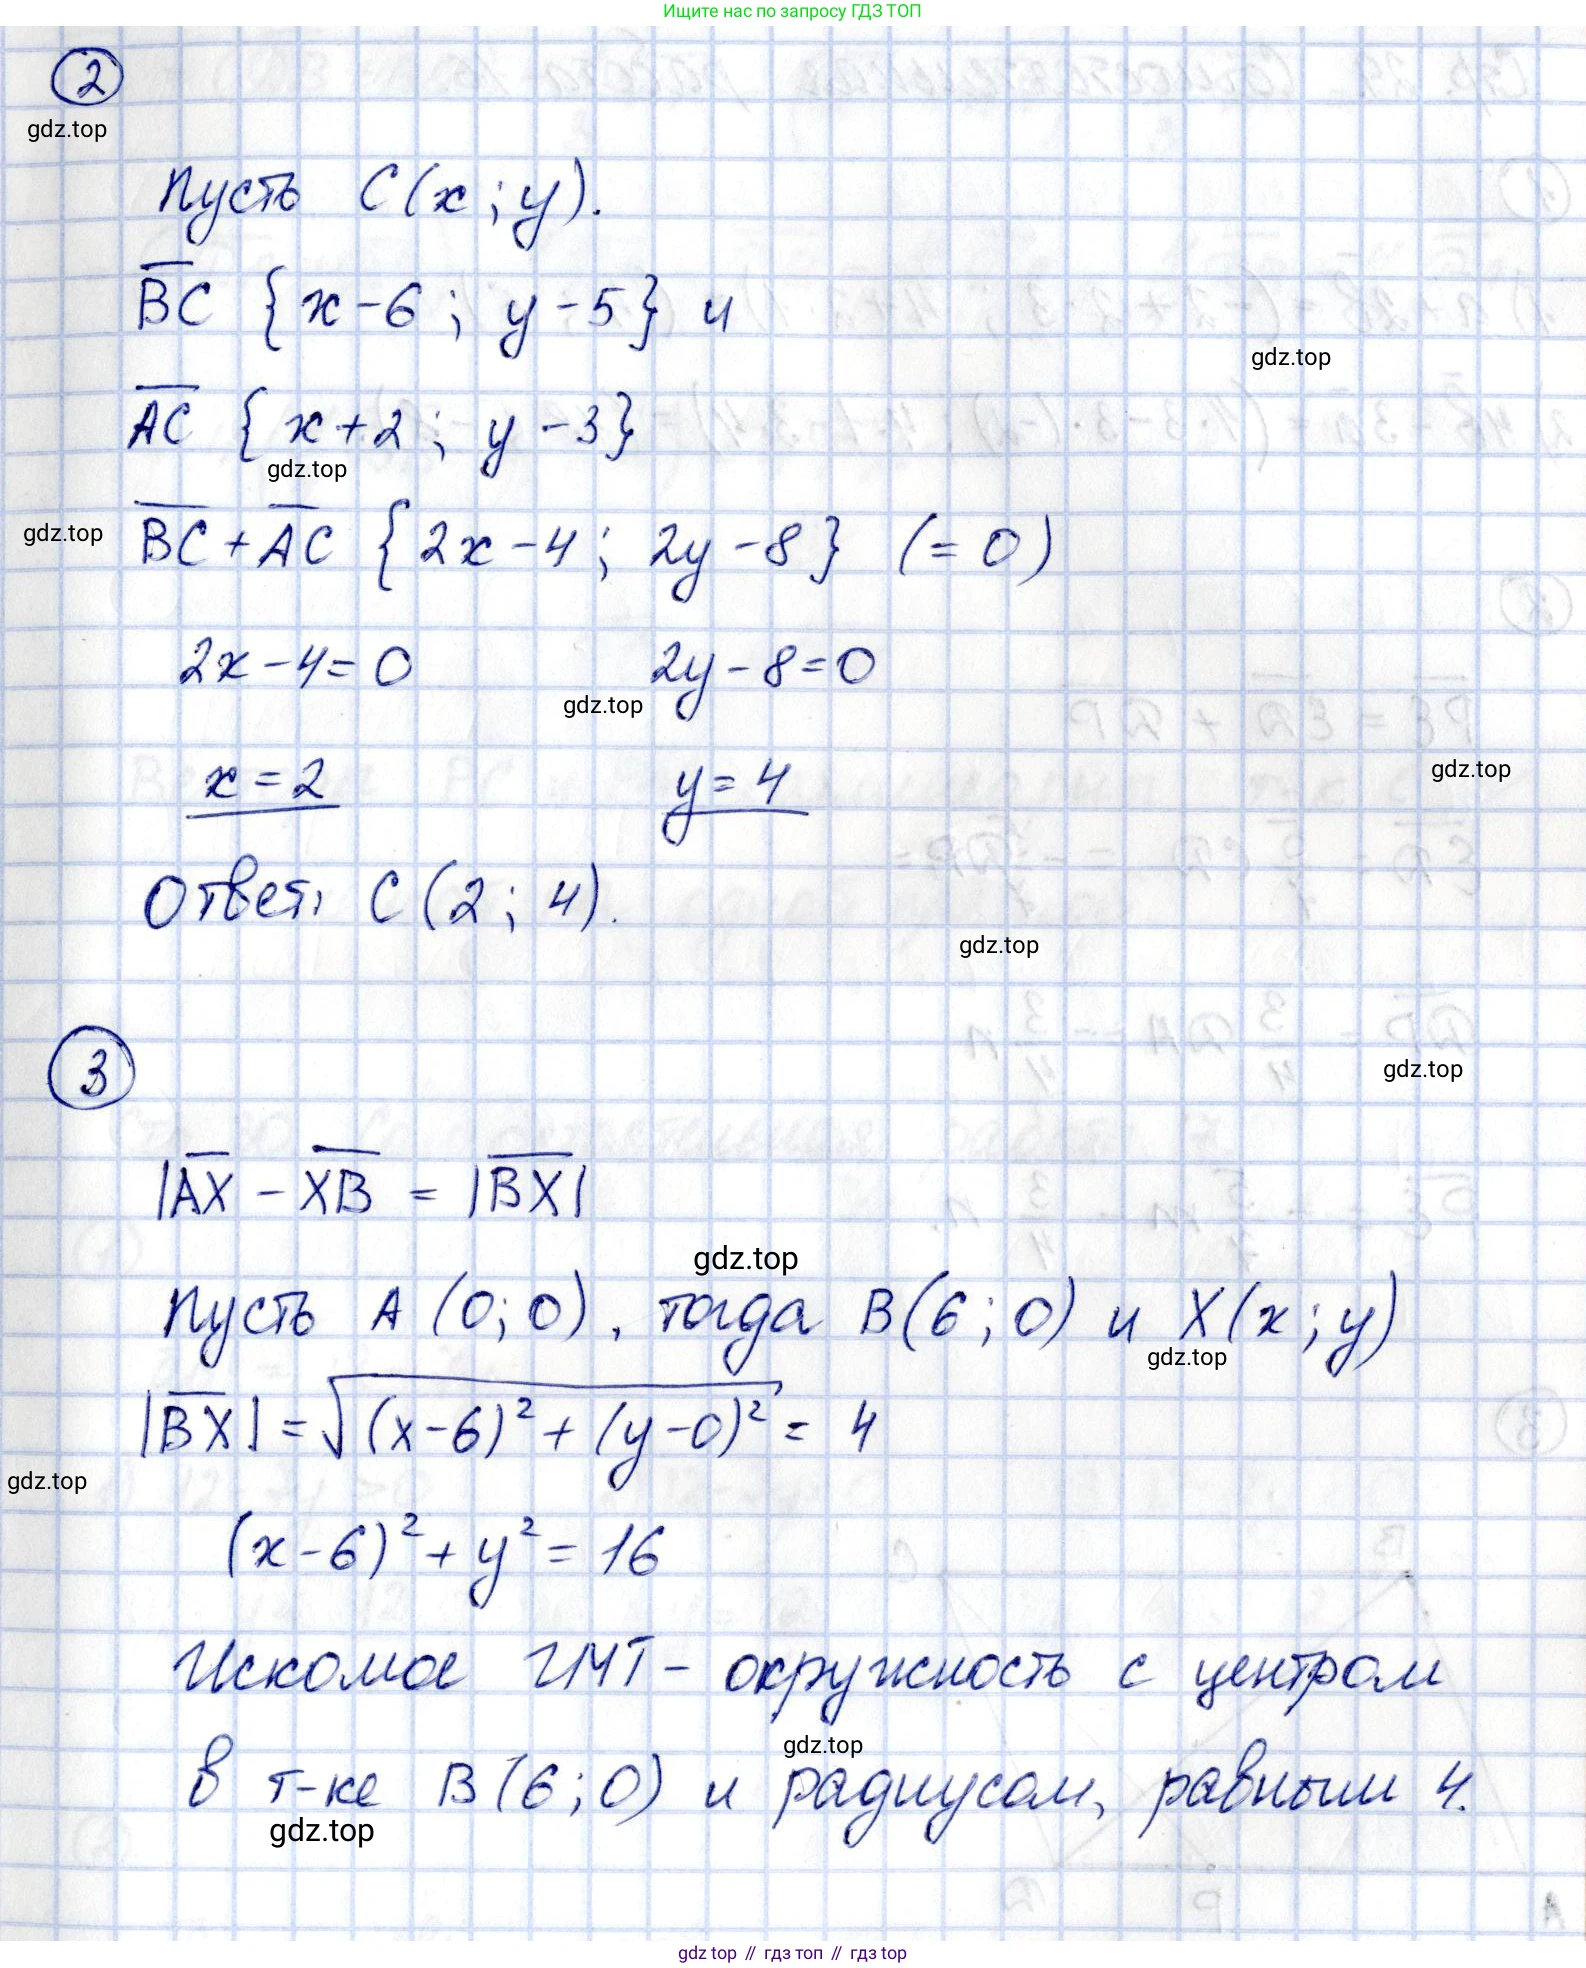 Ищите нас по запросу ГДЗ ТОП
2
gdz.top
Пусть C(x; y).
BC {x-6; y-5} и
gdz.top
AC {x+2; y-3}
gdz.top
gdz.top
BC + AC {2x-4; 2y-8} (=0)
2x-4=0 2y-8=0
gdz.top
x=2 y=4
gdz.top
Ответ: C(2; 4).
gdz.top
3
gdz.top
|AX - XB = |BX|
gdz.top
Пусть A(0; 0), тогда B(6; 0) и X(x; y)
gdz.top
|BX| = √(x-6)² + (y-0)² = 4
gdz.top
(x-6)² + y² = 16
Искомое ГМТ - окружность с центром
gdz.top
в т-ке B(6; 0) и радиусом, равным 4.
gdz.top
gdz.top // гдз топ // гдз top